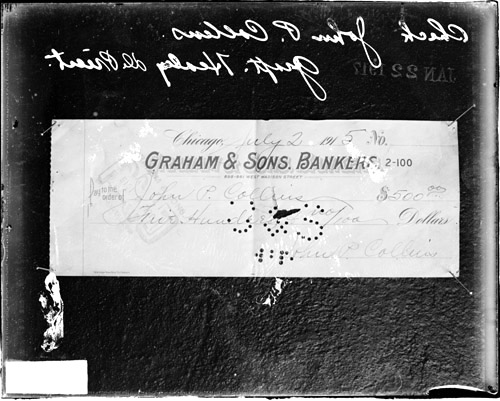 Check John P. Collins.
Healey De Priest.
JAN 22 1917
Chicago, July 2 1915 No.
GRAHAM & SONS, BANKERS, 2-100
WEST MADISON STREET
Pay to the order of John P. Collins $500 00
Five Hundred Dollars
John P. Collins